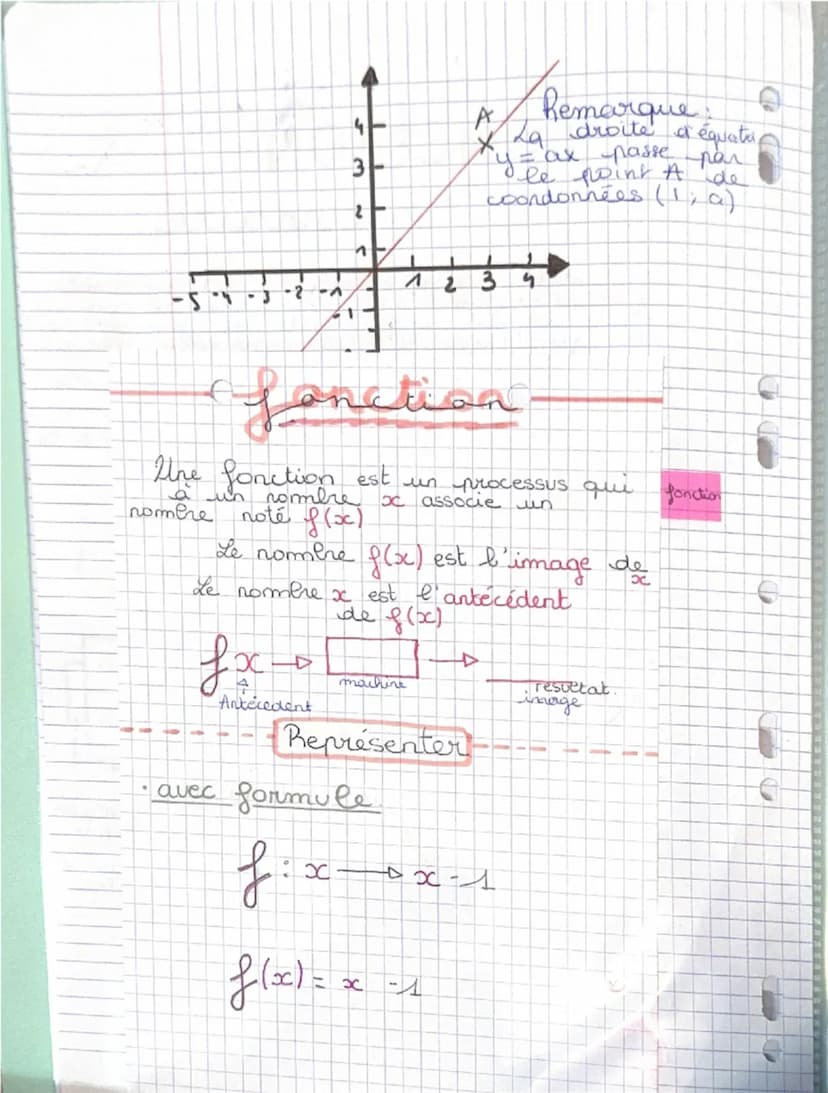 A
Remarque :
La droite d'équat
y = ax passe par
le point A de
coordonnées (1 ; a)
4
3
2
1
-5 -4 -3 -2 -1 1 2 3 4
-1
fonction
Une fonction est un processus qui
à un nombre x associe un
nombre noté f(x)
fonction
Le nombre f(x) est l'image de
x
Le nombre x est l'antécédent
de f(x)
f x
machine
résultat.
Antécedent
image
Représenter
. avec formule
f : x → x - 1
f(x) = x - 1